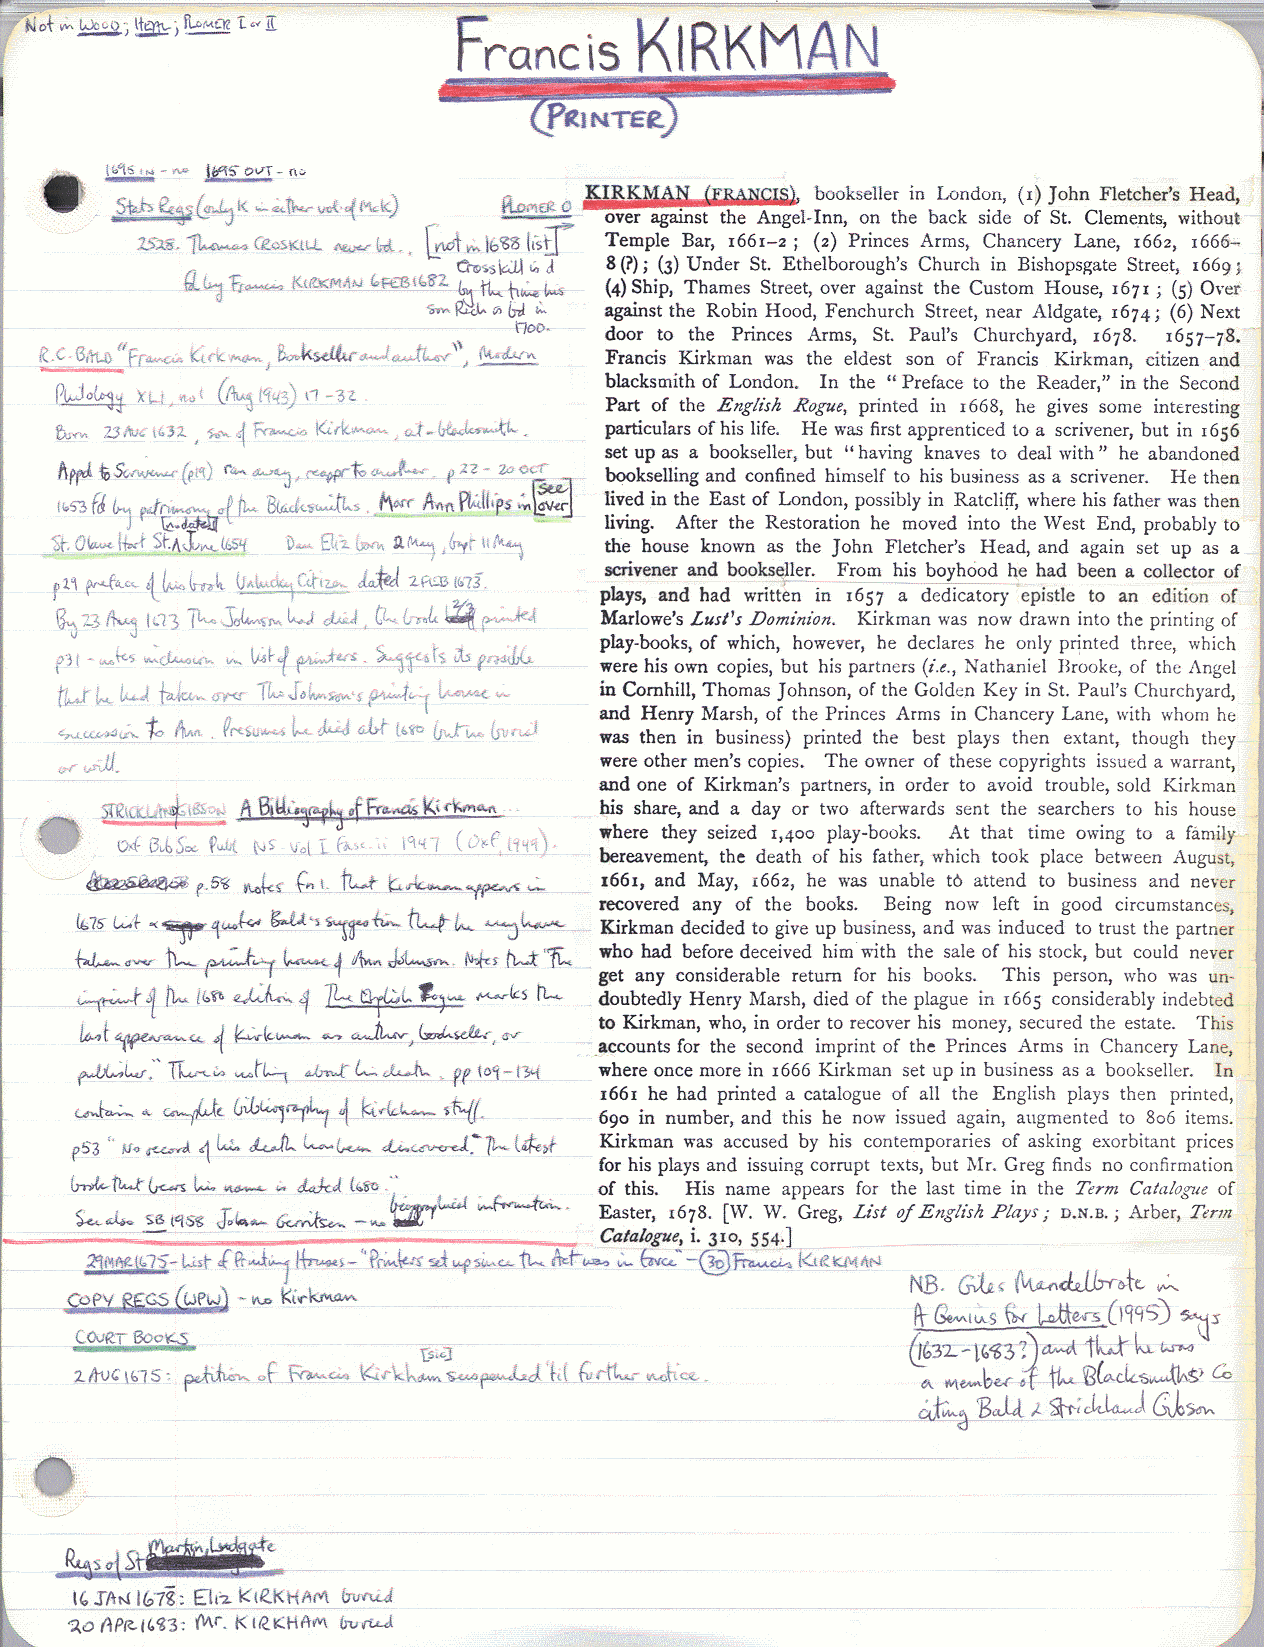 Not in WOOD; HEAL; PLOMER I or II
Francis KIRKMAN
(PRINTER)
1695 IN - no 1695 OUT - no
Stats Regs (only K in either vol of McK) PLOMER O
2528. Thomas CROSKILL never bd. [not in 1688 list]
fd by Francis KIRKMAN 6 FEB 1682
Crosskill is d
by the time his
son Rich is bd in
1700.
R.C. BALD "Francis Kirkman, Bookseller and author", Modern
Philology XLI, no 1 (Aug 1943) 17-32.
Born 23 AUG 1632, son of Francis Kirkman, cit-blacksmith.
Appd to Scrivener (p19) ran away, reappr to another. p22 - 20 OCT
1653 fd by patrimony of the Blacksmiths. Marr Ann Phillips in [see over]
St. Olave Hart St. [no date] June 1654 Dau Eliz born 2 May, bapt 11 May
p29 preface of his book Unlucky Citizen dated 2 FEB 1673.
By 23 Aug 1673 Tho Johnson had died, the book 2/3 printed
p31 - notes inclusion in list of printers. Suggests its possible
that he had taken over Tho Johnson's printing house in
succession to Ann. Presumes he died abt 1680 but no burial
or will.
STRICKLAND GIBSON A Bibliography of Francis Kirkman
Oxf Bib Soc Publ NS. Vol I Fasc. ii 1947 (Oxf, 1949).
p.58 notes fn 1. that Kirkman appears in
1675 list & quotes Bald's suggestion that he may have
taken over the printing house of Ann Johnson. Notes that "The
imprint of the 1680 edition of The English Rogue marks the
last appearance of Kirkman as author, bookseller, or
publisher." There is nothing about his death. pp 109-134
contain a complete bibliography of Kirkham stuff.
p53 "No record of his death has been discovered." The latest
book that bears his name is dated 1680."
See also SB 1958 Johan Gerritsen - no biographical information.
KIRKMAN (FRANCIS), bookseller in London, (1) John Fletcher's Head,
over against the Angel-Inn, on the back side of St. Clements, without
Temple Bar, 1661-2; (2) Princes Arms, Chancery Lane, 1662, 1666-
8 (?); (3) Under St. Ethelborough's Church in Bishopsgate Street, 1669;
(4) Ship, Thames Street, over against the Custom House, 1671; (5) Over
against the Robin Hood, Fenchurch Street, near Aldgate, 1674; (6) Next
door to the Princes Arms, St. Paul's Churchyard, 1678. 1657-78.
Francis Kirkman was the eldest son of Francis Kirkman, citizen and
blacksmith of London. In the "Preface to the Reader," in the Second
Part of the English Rogue, printed in 1668, he gives some interesting
particulars of his life. He was first apprenticed to a scrivener, but in 1656
set up as a bookseller, but "having knaves to deal with" he abandoned
bookselling and confined himself to his business as a scrivener. He then
lived in the East of London, possibly in Ratcliff, where his father was then
living. After the Restoration he moved into the West End, probably to
the house known as the John Fletcher's Head, and again set up as a
scrivener and bookseller. From his boyhood he had been a collector of
plays, and had written in 1657 a dedicatory epistle to an edition of
Marlowe's Lust's Dominion. Kirkman was now drawn into the printing of
play-books, of which, however, he declares he only printed three, which
were his own copies, but his partners (i.e., Nathaniel Brooke, of the Angel
in Cornhill, Thomas Johnson, of the Golden Key in St. Paul's Churchyard,
and Henry Marsh, of the Princes Arms in Chancery Lane, with whom he
was then in business) printed the best plays then extant, though they
were other men's copies. The owner of these copyrights issued a warrant,
and one of Kirkman's partners, in order to avoid trouble, sold Kirkman
his share, and a day or two afterwards sent the searchers to his house
where they seized 1,400 play-books. At that time owing to a family
bereavement, the death of his father, which took place between August,
1661, and May, 1662, he was unable to attend to business and never
recovered any of the books. Being now left in good circumstances,
Kirkman decided to give up business, and was induced to trust the partner
who had before deceived him with the sale of his stock, but could never
get any considerable return for his books. This person, who was un-
doubtedly Henry Marsh, died of the plague in 1665 considerably indebted
to Kirkman, who, in order to recover his money, secured the estate. This
accounts for the second imprint of the Princes Arms in Chancery Lane,
where once more in 1666 Kirkman set up in business as a bookseller. In
1661 he had printed a catalogue of all the English plays then printed,
690 in number, and this he now issued again, augmented to 806 items.
Kirkman was accused by his contemporaries of asking exorbitant prices
for his plays and issuing corrupt texts, but Mr. Greg finds no confirmation
of this. His name appears for the last time in the Term Catalogue of
Easter, 1678. [W. W. Greg, List of English Plays; D.N.B.; Arber, Term
Catalogue, i. 310, 554.]
29 MAR 1675 - List of Printing Houses - "Printers set up since the Act was in force" - (30) Francis KIRKMAN
COPY REGS (WPW) - no Kirkman
COURT BOOKS
2 AUG 1675: petition of Francis Kirkham [sic] suspended 'til further notice.
NB. Giles Mandelbrote in
A Genius for Letters (1995) says
(1632-1683?) and that he was
a member of the Blacksmiths' Co
citing Bald & Strickland Gibson
Regs of St Martin, Ludgate
16 JAN 1678: Eliz KIRKHAM buried
20 APR 1683: Mr. KIRKHAM buried